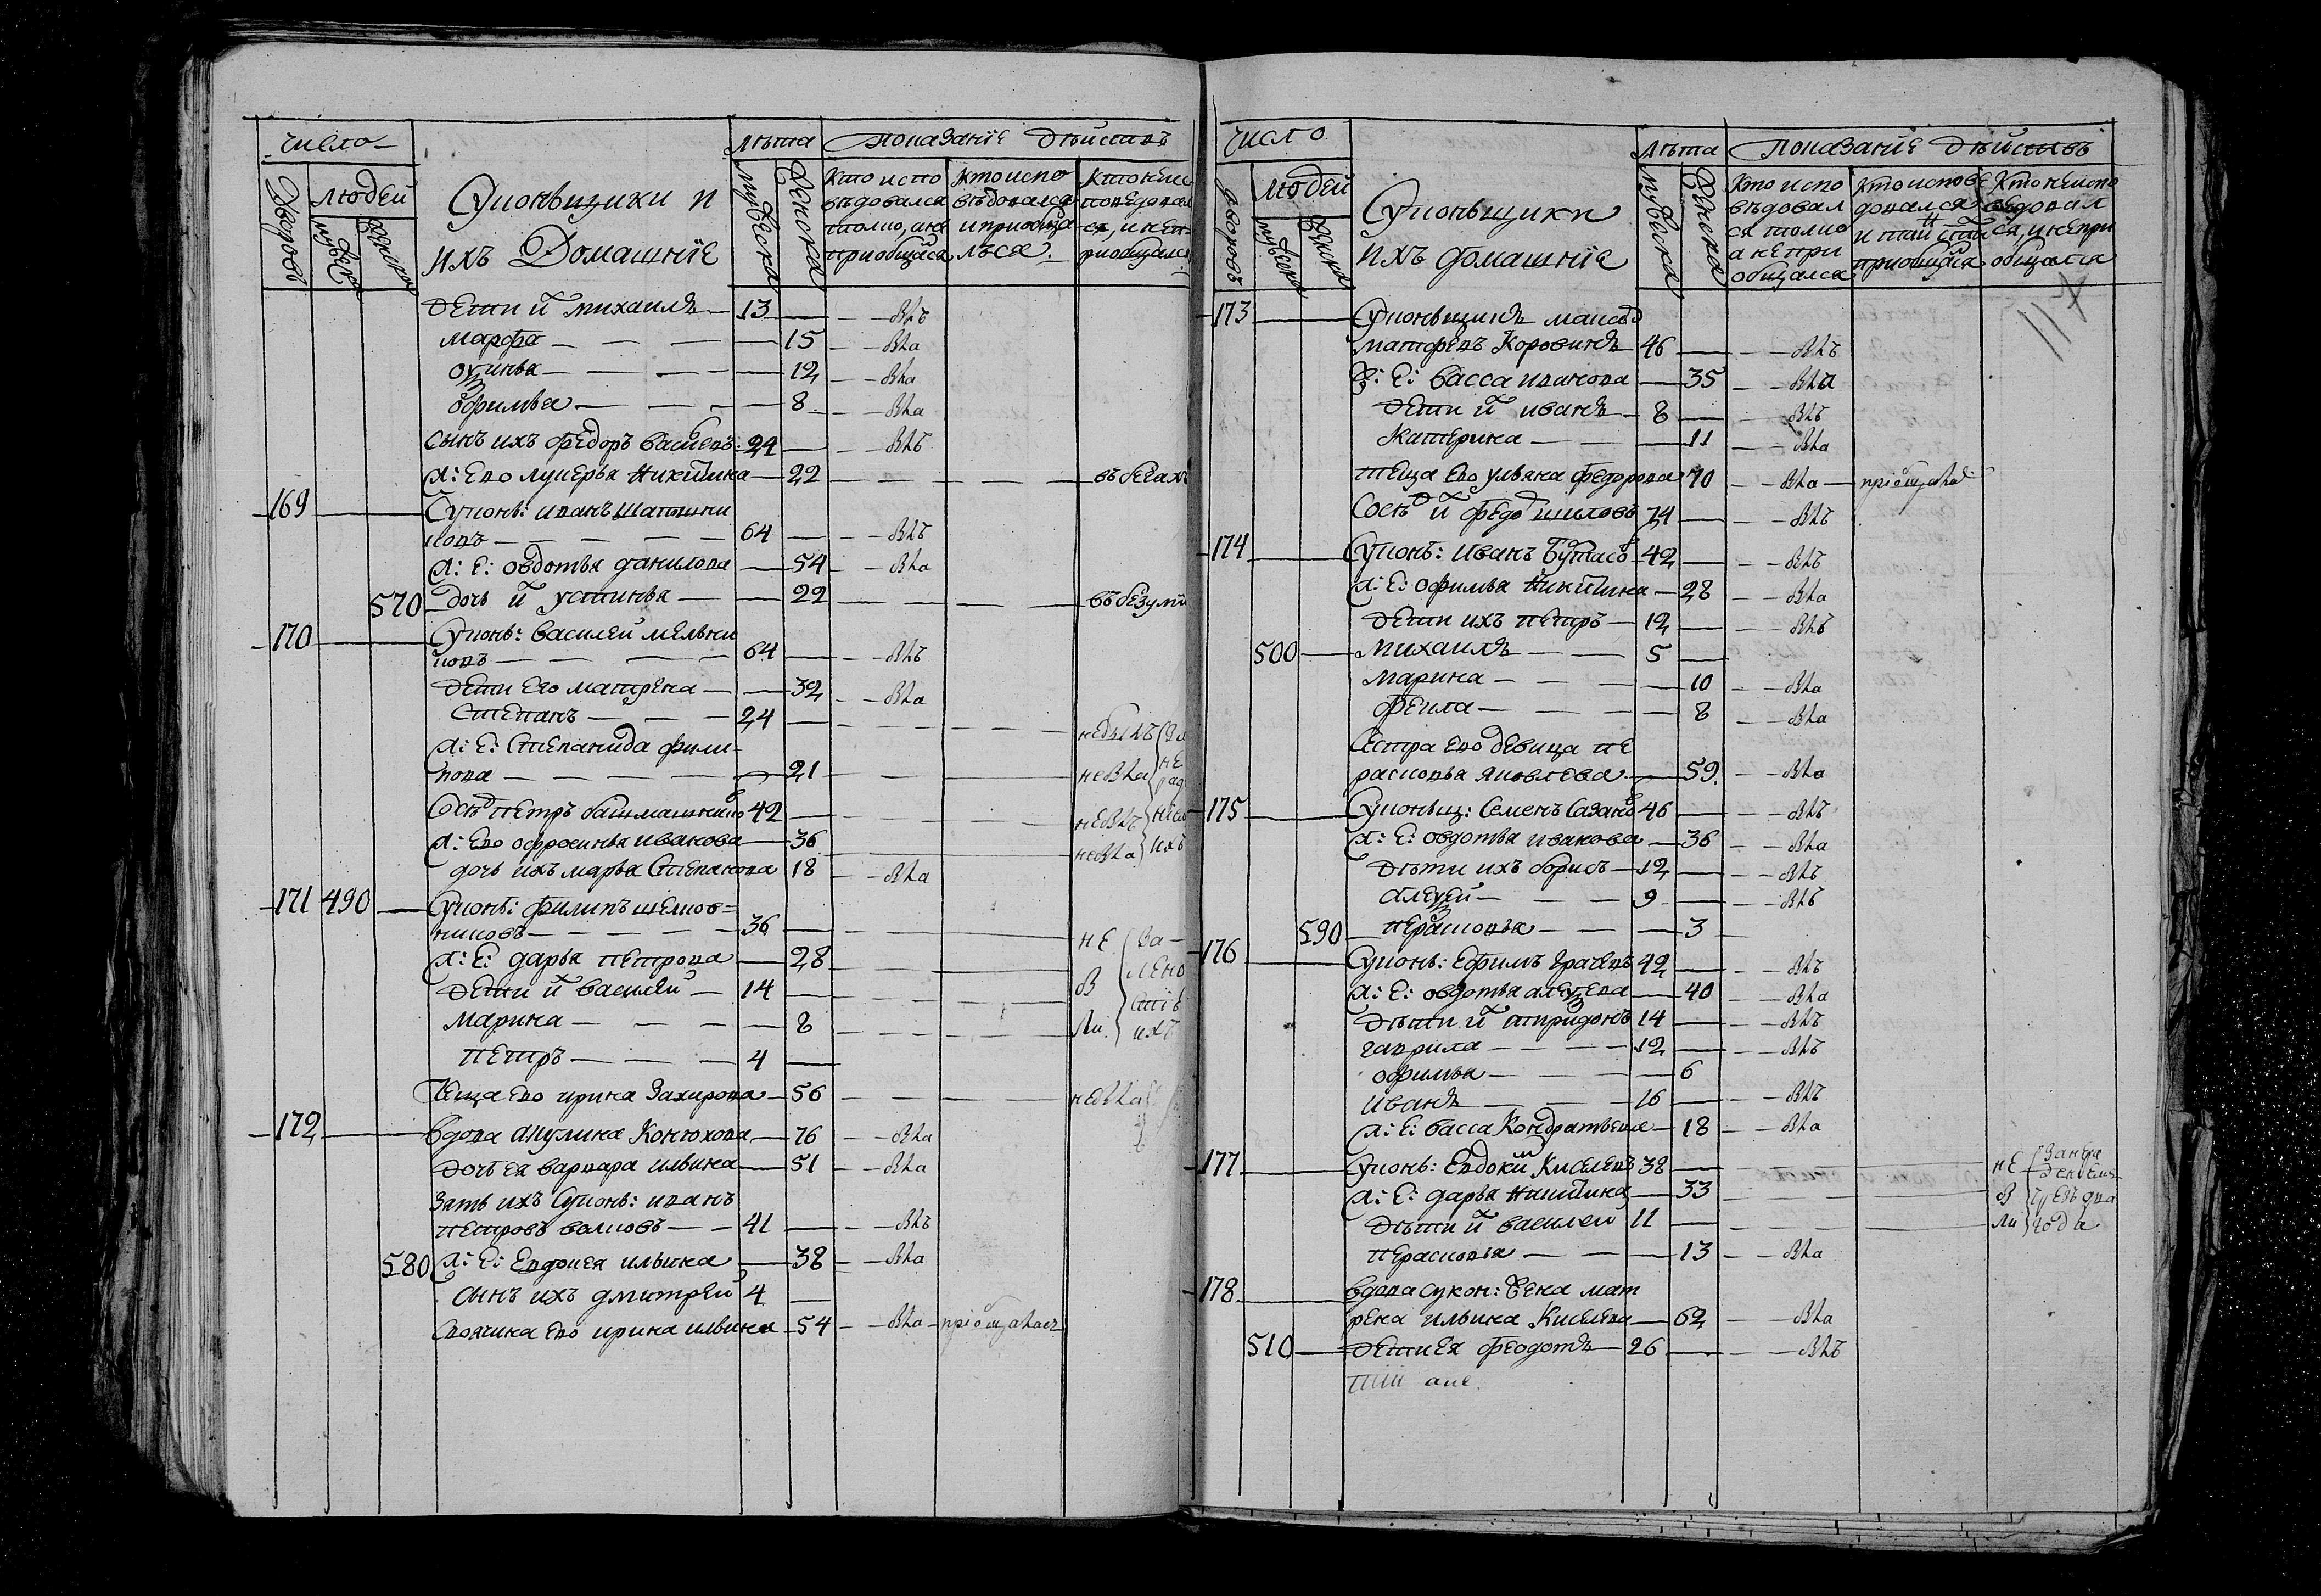 число
лѣта показание дѣйствъ
Дворовъ людей мужеска женска
Суконьщики и
ихъ Домашние
мужеска женска
Кто испо
вѣдовался
толко, а не
приобщался
Кто испо
вѣдовался
и приобща
лъся
Кто неис
поведовал
ся, и неп
риобщался
дети и͠ михаилъ 13 былъ
марфа 15 была
12 была
офимья 8 была
сынъ ихъ федоръ васильевъ 24 былъ
ж: ево лукерья никитина 22 въ бегахъ
169 Суконь: иванъ
ковъ 64 былъ
ж: е: овдотья данилова 54 была
570 дочь и͠ устинья 22 въ безуми
170 Суконь: василей мельни
ковъ 64 былъ
дети его матрена 32 была
степанъ 24 небылъ
ж: е: степанида фили
пова 21 небыла
петръ башмашнико 42 небылъ
ж: ево офросинья иванова 36 небыла
дочь ихъ марья степанова 18 была
171 490 Суконь: филипъ шелков
никовъ 36 не
ж: е: дарья петрова 28
дети и͠ василей 14 б
марина 8 ли
петръ 4
теща ево ирина захарова 56 небыла
172 вдова акулина Конюхова 76 была
дочь ея варвара ильина 51 была
зять ихъ Суконь: иванъ
петровъ волковъ 41 былъ
580 ж: е: Евдокея ильина 38 была
сынъ ихъ дмитрей 4
своячина ево ирина ильина 54 была приобщалась
число
лѣта показание дѣйствъ
дворовъ людей мужеска женска
Суконьщики
ихъ домашние
мужеска женска
Кто испо
вѣдовал
ся толко
а не при
общался
Кто испове
довался
и
приобщался
Кто неиспо
ведовал
ся, и непри
общался
173 Суконьщикъ
матфевъ Коровинъ 46 былъ
ж: е: васса иванова 35 была
дети и͠ иванъ 8 былъ
Катерина 11 была
теща ево ульяна федорова 70 была приобщалас
и͠ федо шиловъ 74 былъ
174 Суконь: иванъ 42 былъ
ж: е: офимья никитина 28 была
дети ихъ петръ 12 былъ
500 михаилъ 5
марина 10 была
фекла 8 была
сестра ево девица пе
расковья яковлева 59 была
175 Суконьщ: семенъ сазано 46 былъ
ж: е: овдотья иванова 36 была
дѣти ихъ борисъ 12 былъ
алексей 9 былъ
590 перасковья 3
176 Суконь: ефимъ грачевъ 42 былъ
ж: е: овдотья алексева 40 была
дѣти и͠ спиридонъ 14 былъ
гаврила 12 былъ
офимья 6
иванъ 16 былъ
ж: е: васса Кондратьева 18 была
177 Суконь: Евдоким Киселевъ 38 не
ж: е: дарья никитина 33 б
дѣти и͠ василей 11 ли года
перасковья 13 была
178 вдова сукон: жена мат
рена ильина Киселева 62 была
510 дети ея феодотъ 26 былъ